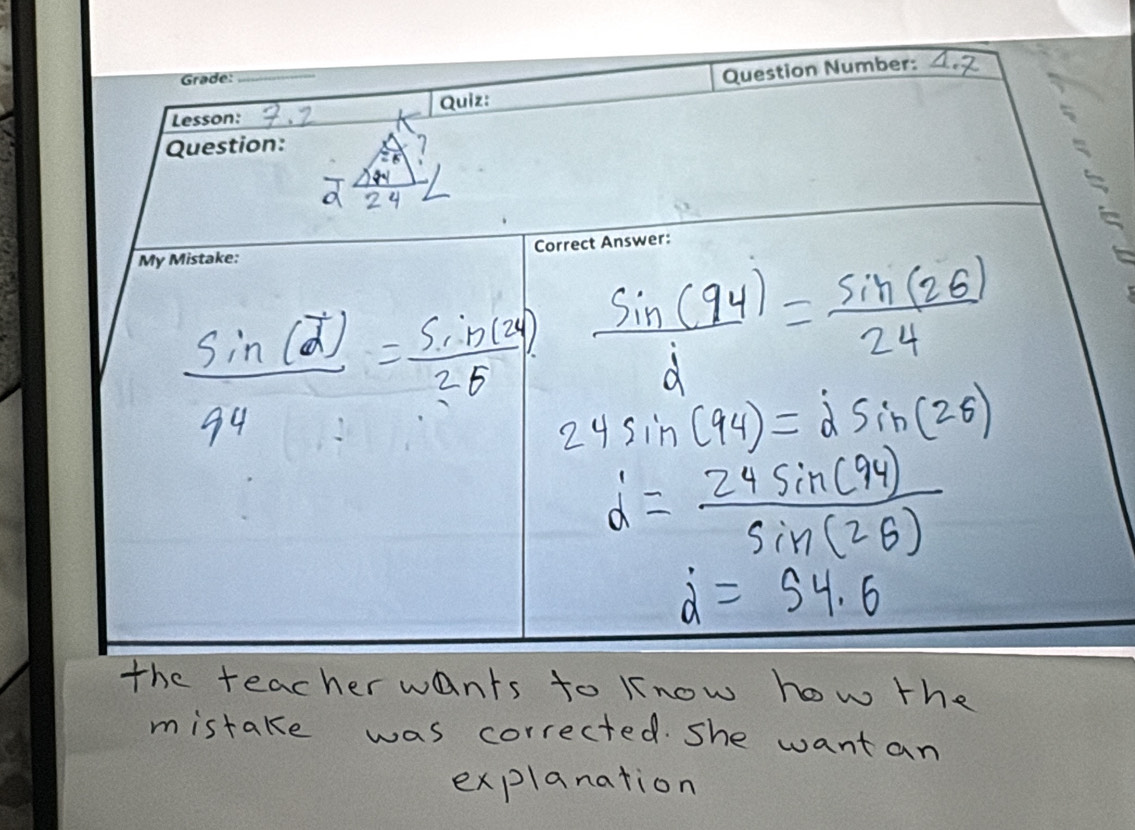 Grade:
Question Number: 4.2
Lesson: 7.2
Quiz:
Question:
K
?
26
94
J 24 L
My Mistake:
Correct Answer:
sin (J) = sin(24)
94 26
sin (94) = sin (26)
j 24
24 sin (94) = j sin (26)
j = 24 sin (94)
sin (26)
j = 54.6
the teacher wants to know how the
mistake was corrected. she want an
explanation